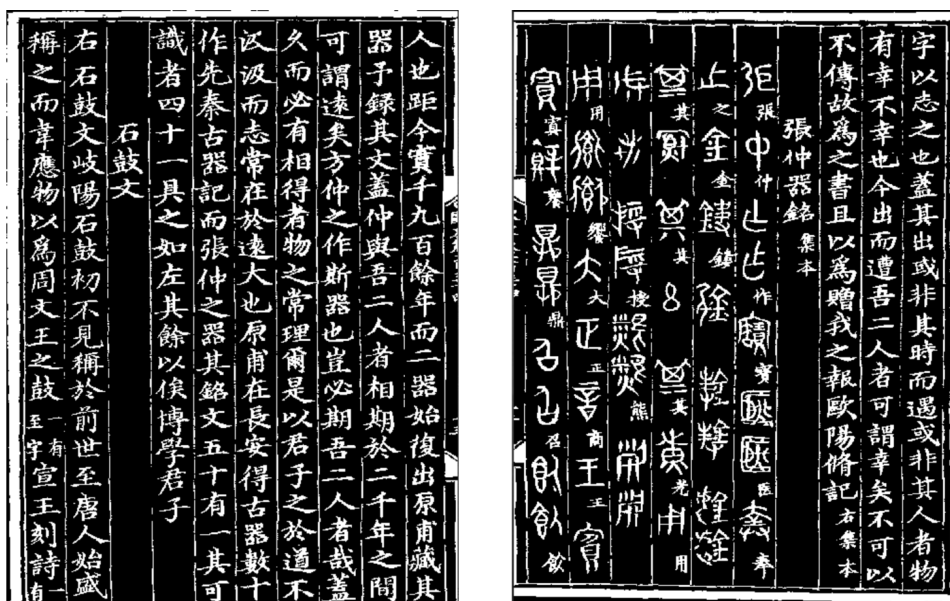 字以志之也蓋其出或非其時而遇或非其人者物
有幸不幸也今出而遭吾二人者可謂幸矣不可以
不傳故爲之書且以爲贈我之報歐陽脩記右集本
張仲器銘集本
張仲作寶匜奉
之金鏤
其其其光用
授熊
用饗大正商王
鼎召飲
人也距今實千九百餘年而二器始復出原甫藏其
器予錄其文蓋仲與吾二人者相期於二千年之間
可謂遠矣方仲之作斯器也豈必期吾二人者哉蓋
久而必有相得者物之常理爾是以君子之於道不
汲汲而志常在於遠大也原甫在長安得古器數十
作先秦古器記而張仲之器其銘文五十有一其可
識者四十一具之如左其餘以俟博學君子
石鼓文
右石鼓文岐陽石鼓初不見稱於前世至唐人始盛
稱之而韋應物以爲周文王之鼓一有至字宣王刻詩一有